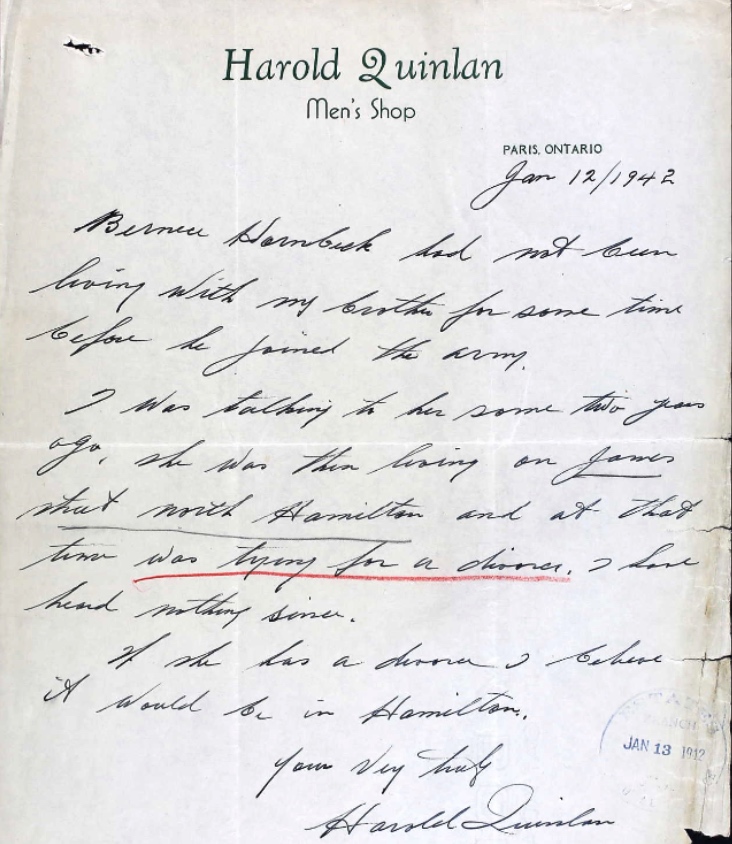 Harold Quinlan
Men's Shop
PARIS, ONTARIO
Jan 12/1942
Bernice Hornbeck had not been
living with my brother for some time
before he joined the army.
I was talking to her some two years
ago, she was then living on James
street north Hamilton and at that
time was trying for a divorce. I have
heard nothing since.
If she has a divorce I believe
it would be in Hamilton.
Your Very truly
Harold Quinlan
ESTATES
BRANCH
JAN 13 1942